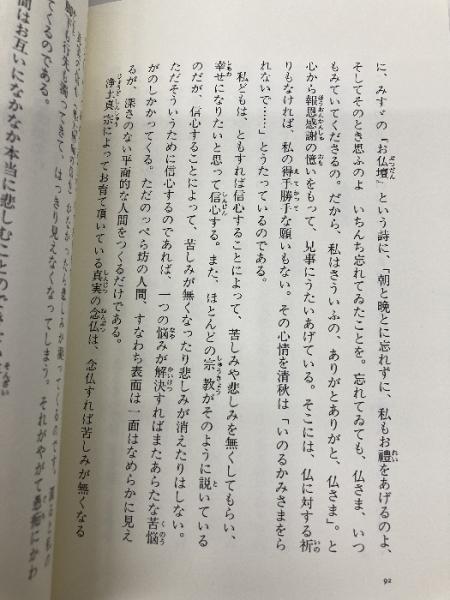 に、みすゞの「お仏壇」という詩に、「朝と晩とに忘れずに、私もお禮をあげるのよ、
そしてそのとき思ふのよ　いちんち忘れてゐたことを。忘れてゐても、仏さま、いつ
もみていてくださるの。だから、私はさういふの、ありがとありがと、仏さま。」と
心から報恩感謝の憶いをもって、見事にうたいあげている。そこには、仏に対する祈
りもなければ、私の得手勝手な願いもない。その心情を清秋は「いのるかみさまをら
れないで……」とうたっているのである。
私どもは、ともすれば信心することによって、苦しみや悲しみを無くしてもらい、
幸せになりたいと思って信心する。また、ほとんどの宗教がそのように説いている
のだが、信心することによって、苦しみが無くなったり悲しみが消えたりはしない。
ただそういうために信心するのであれば、一つの悩みが解決すればまたあらたな苦悩
がのしかかってくる。ただのっぺら坊の人間、すなわち表面は一面はなめらかに見え
るが、深さのない平面的な人間をつくるだけである。
浄土真宗によってお育て頂いている真実の念仏は、念仏すれば苦しみが無くなる
92
濁ってきて、はっきり見えなくなってしまう。それがやがて愚痴にかわ
てくるのである。
間はお互いになかなか本当に悲しむことのでき